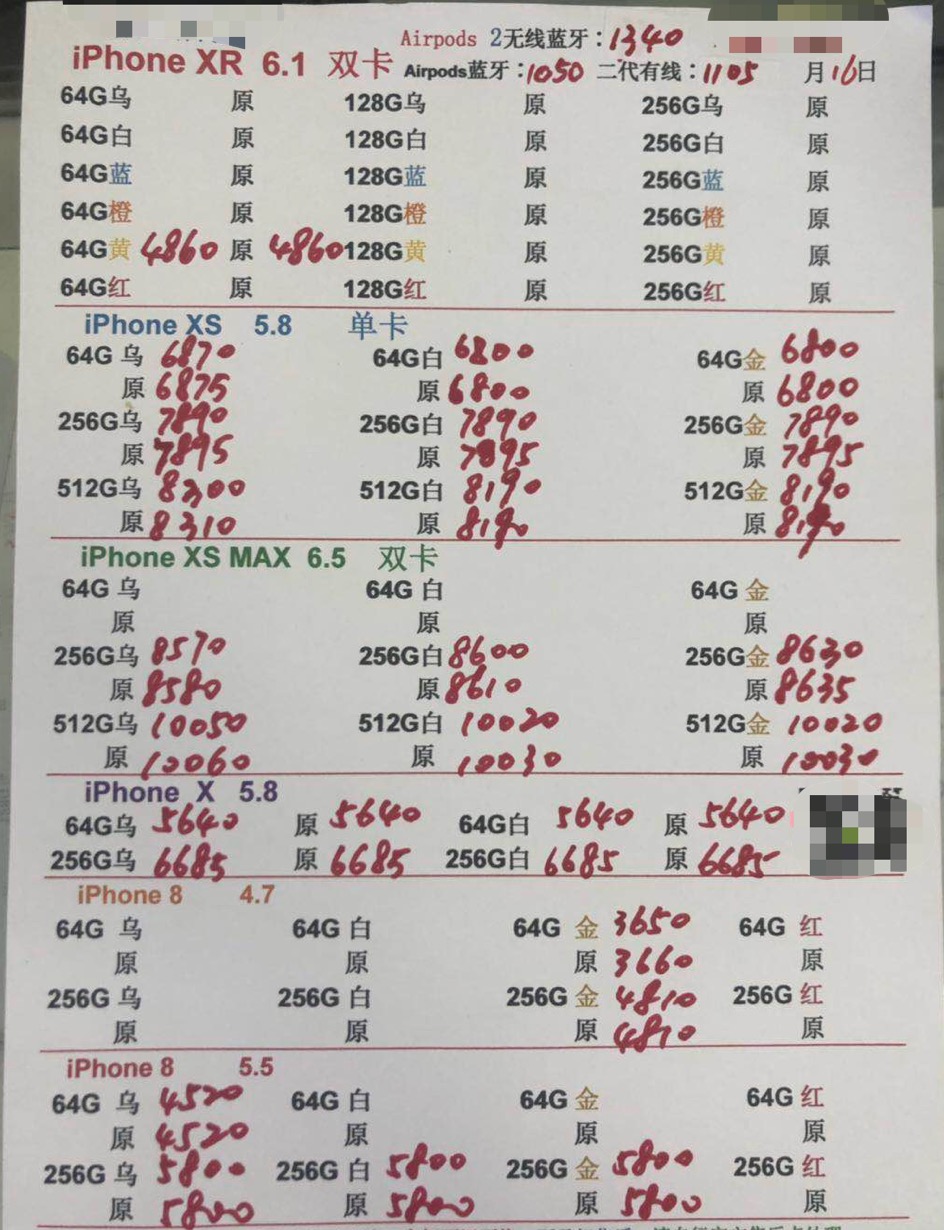 Airpods 2无线蓝牙：1340
iPhone XR 6.1 双卡 Airpods蓝牙：1050 二代有线：1105 月16日
64G乌 原 128G乌 原 256G乌 原
64G白 原 128G白 原 256G白 原
64G蓝 原 128G蓝 原 256G蓝 原
64G橙 原 128G橙 原 256G橙 原
64G黄 4860 原 4860 128G黄 原 256G黄 原
64G红 原 128G红 原 256G红 原
iPhone XS 5.8 单卡
64G 乌 6870 64G白 6800 64G金 6800
原 6875 原 6800 原 6800
256G乌 7890 256G白 7890 256G金 7890
原 7895 原 7895 原 7895
512G乌 8300 512G白 8190 512G金 8190
原 8310 原 8190 原 8190
iPhone XS MAX 6.5 双卡
64G 乌 64G 白 64G 金
原 原 原
256G乌 8570 256G白 8600 256G金 8630
原 8580 原 8610 原 8635
512G乌 10050 512G白 10020 512G金 10020
原 10060 原 10030 原 10030
iPhone X 5.8
64G乌 5640 原 5640 64G白 5640 原 5640
256G乌 6685 原 6685 256G白 6685 原 6685
iPhone 8 4.7
64G 乌 64G 白 64G 金 3650 64G 红
原 原 原 3660 原
256G 乌 256G 白 256G 金 4810 256G 红
原 原 原 4810 原
iPhone 8 5.5
64G 乌 4520 64G 白 64G 金 64G 红
原 4520 原 原 原
256G 乌 5800 256G 白 5800 256G 金 5800 256G 红
原 5800 原 5800 原 5800 原